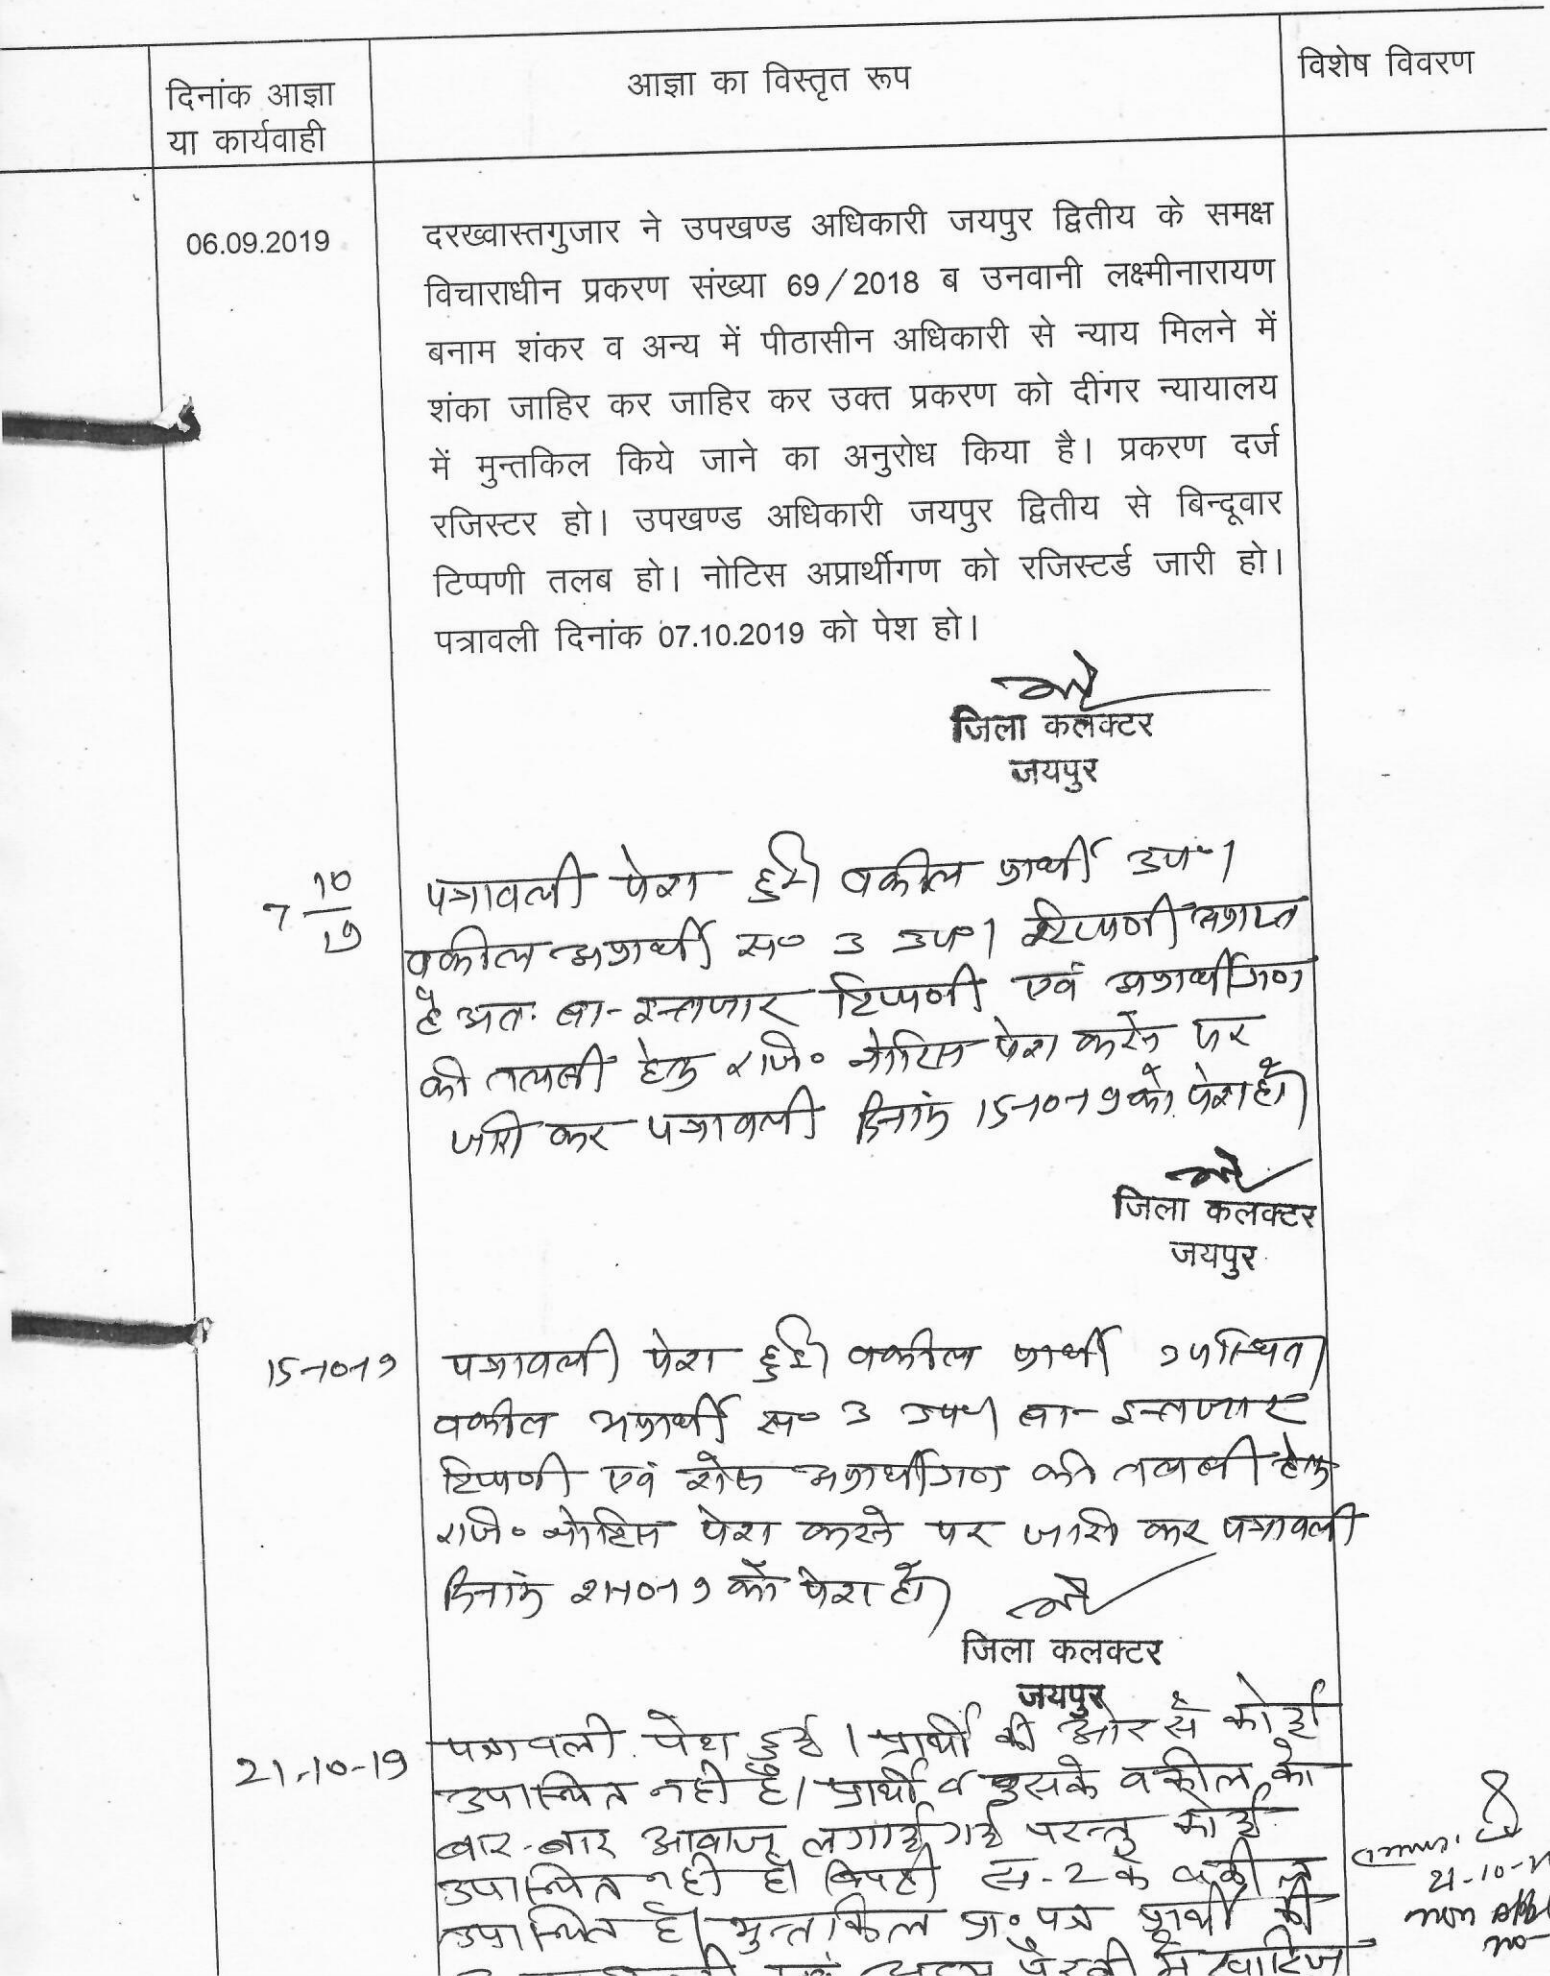 दिनांक आज्ञा
या कार्यवाही
आज्ञा का विस्तृत रूप
विशेष विवरण
06.09.2019
दरख्वास्तगुजार ने उपखण्ड अधिकारी जयपुर द्वितीय के समक्ष
विचाराधीन प्रकरण संख्या 69/2018 ब उनवानी लक्ष्मीनारायण
बनाम शंकर व अन्य में पीठासीन अधिकारी से न्याय मिलने में
शंका जाहिर कर जाहिर कर उक्त प्रकरण को दीगंर न्यायालय
में मुन्तकिल किये जाने का अनुरोध किया है। प्रकरण दर्ज
रजिस्टर हो। उपखण्ड अधिकारी जयपुर द्वितीय से बिन्दूवार
टिप्पणी तलब हो। नोटिस अप्रार्थीगण को रजिस्टर्ड जारी हो।
पत्रावली दिनांक 07.10.2019 को पेश हो।
जिला कलक्टर
जयपुर
7 10/19
पत्रावली पेश हुई। वकील प्रार्थी उप०।
वकील अप्रार्थी स० 3 उप०। टिप्पणी अप्राप्त
है अतः बा-इन्तजार टिप्पणी एवं अप्रार्थीगण
की तलबी हेतु रजि० नोटिस पेश करने पर
जारी कर पत्रावली दिनांक 15-10-19 को पेश हो।
जिला कलक्टर
जयपुर
15-10-19
पत्रावली पेश हुई। वकील प्रार्थी उपस्थित।
वकील अप्रार्थी स० 3 उप०। बा-इन्तजार
टिप्पणी एवं शेष अप्रार्थीगण की तलबी हेतु
रजि० नोटिस पेश करने पर जारी कर पत्रावली
दिनांक 21-10-19 को पेश हो।
जिला कलक्टर
जयपुर
21-10-19
पत्रावली पेश हुई। प्रार्थी की ओर से कोई
उपस्थित नही है। प्रार्थी व उसके वकील को
बार-बार आवाज लगाई गई परन्तु कोई
उपस्थित नही है। विपक्षी स-2 के वकील
उपस्थित है। मुन्तकिल प्रा० पत्र प्रार्थी की
पैरवी में खारिज
21-10-